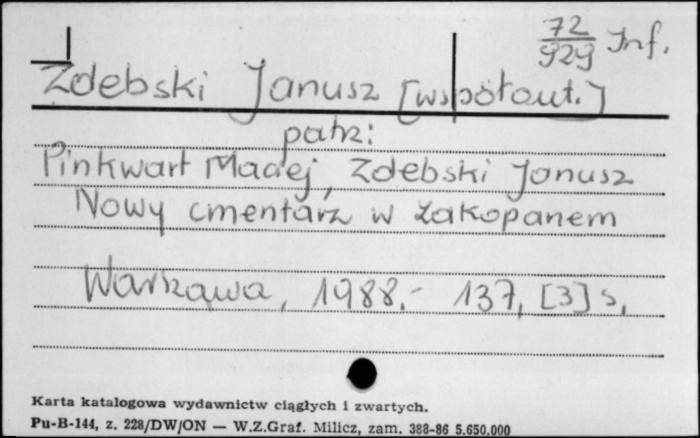 72
929 Inf.
Zdebski Janusz [współaut.]
patrz:
Pinkwart Maciej, Zdebski Janusz
Nowy cmentarz w Zakopanem
Warszawa, 1988.- 137, [3] s.
Karta katalogowa wydawnictw ciągłych i zwartych.
Pu-B-144, z. 228/DW/ON — W.Z.Graf. Milicz, zam. 388-86 5.650.000